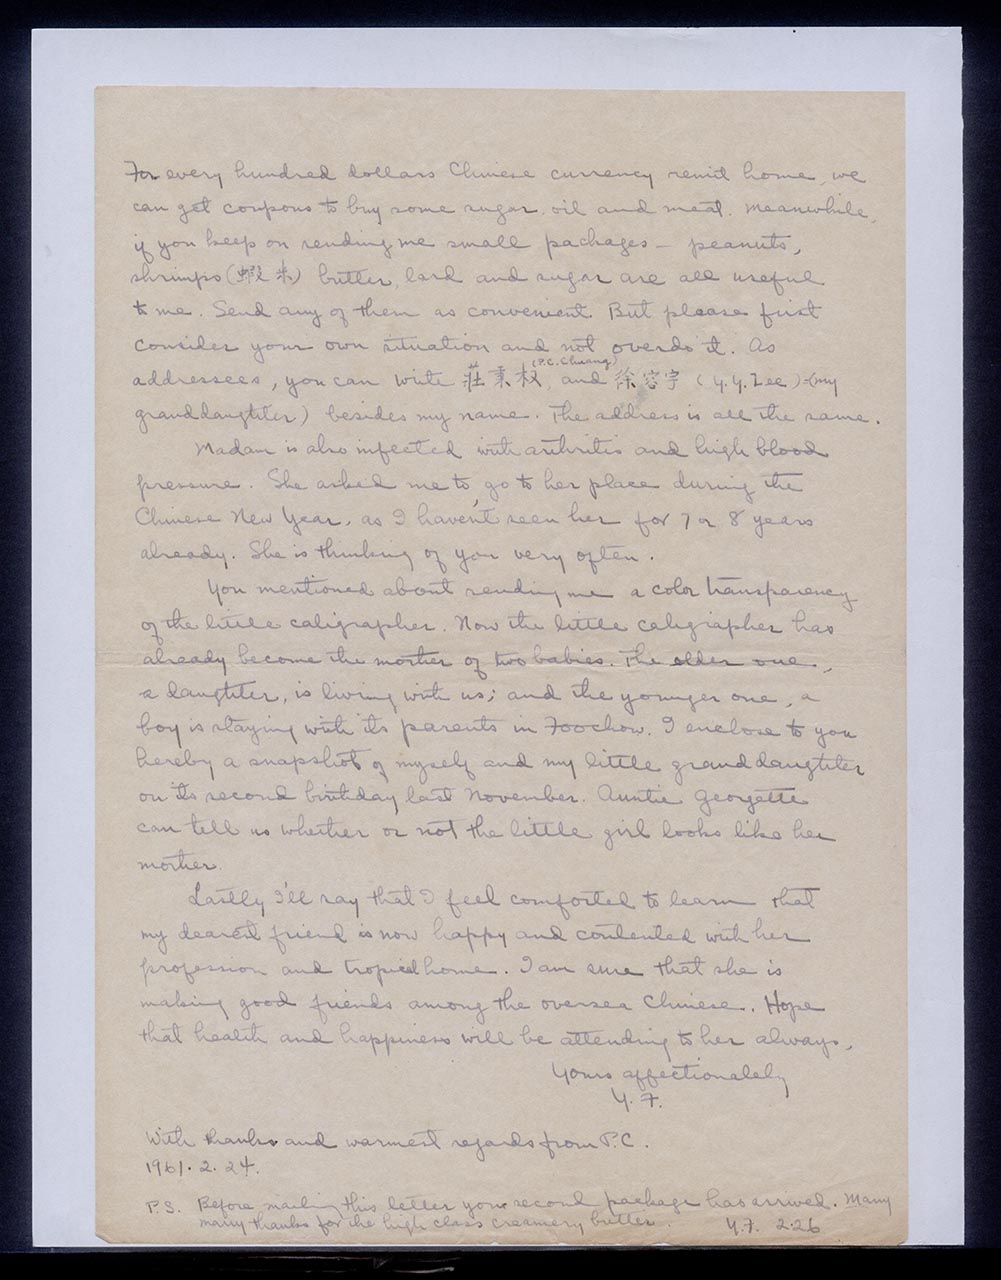 For every hundred dollars Chinese currency remit home, we
can get coupons to buy some sugar, oil and meat. Meanwhile,
if you keep on sending me small packages – peanuts,
shrimps (蝦米) butter, lard and sugar are all useful
to me. Send any of them as convenient. But please first
consider your own situation and not overdo it. As
addressees, you can write 莊秉权 (P.C. Chuang), and 徐容宇 (Y.Y. Zee) – (my
granddaughter) besides my name. The address is all the same.
Madam is also infected with arthritis and high blood
pressure. She asked me to go to her place during the
Chinese New Year, as I haven't seen her for 7 or 8 years
already. She is thinking of you very often.
You mentioned about sending me a color transparency
of the little caligrapher. Now the little caligrapher has
already become the mother of two babies. The older one,
a daughter, is living with us; and the younger one, a
boy is staying with its parents in Foochow. I enclose to you
hereby a snapshot of myself and my little granddaughter
on its second birthday last November. Auntie Georgette
can tell us whether or not the little girl looks like her
mother.
Lastly I'll say that I feel comforted to learn that
my dearest friend is now happy and contented with her
profession and tropical home. I am sure that she is
making good friends among the oversea Chinese. Hope
that health and happiness will be attending to her always.
Yours affectionately
Y. F.
With thanks and warmest regards from P.C.
1961. 2. 24.
P.S. Before mailing this letter your second package has arrived. Many
many thanks for the high class creamery butter. Y.F. 2.26